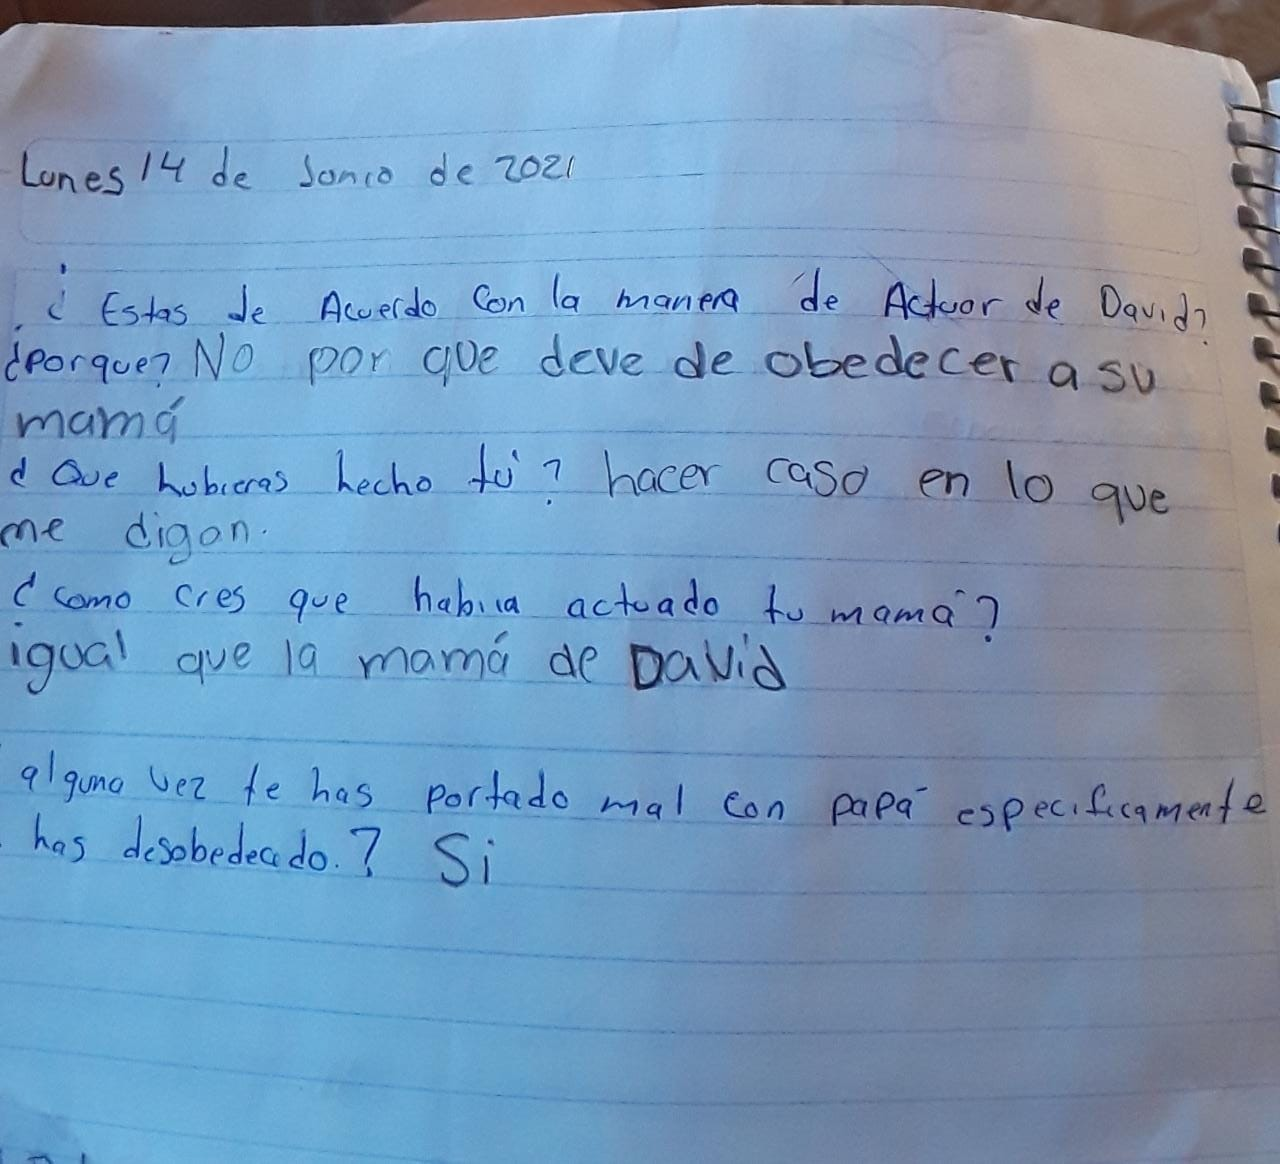 Lunes 14 de Junio de 2021
¿ Estas de Acuerdo Con la manera de Actuar de David?
¿Porque? No por que deve de obedecer a su
mamá
¿ Que hubieras hecho tú? hacer caso en lo que
me digan.
¿ como cres que habiia actuado tu mamá?
igual que la mamá de David
alguna vez te has portado mal con papá especificamente
has desobedecido.? Si